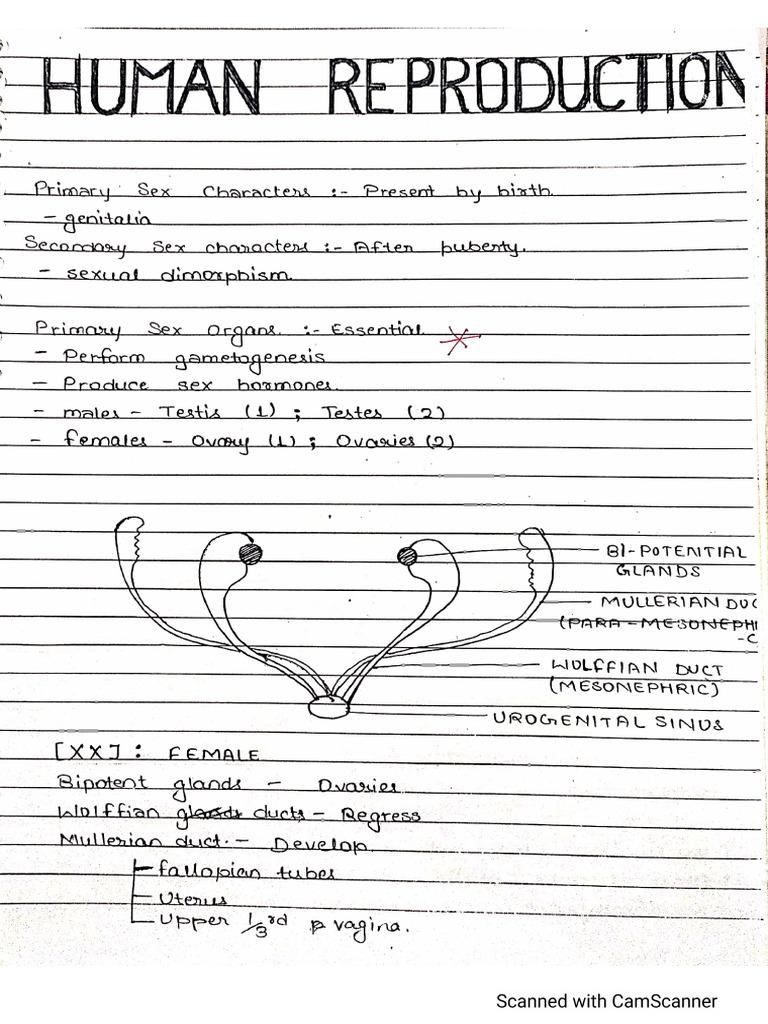 HUMAN REPRODUCTION
Primary Sex Characters :- Present by birth.
- genitalia
Secondary Sex characters :- After puberty.
- sexual dimorphism.
Primary Sex Organs :- Essential.
- Perform gametogenesis
- Produce sex hormones.
- males - Testis (1) ; Testes (2)
- females - Ovary (1) ; Ovaries (2)
BI-POTENTIAL
GLANDS
MULLERIAN DUC
(PARA-MESONEPHI
-C
WOLFFIAN DUCT
(MESONEPHRIC)
UROGENITAL SINUS
[XX] : FEMALE
Bipotent glands - Ovaries
Wolffian ducts - Regress
Mullerian duct. - Develop.
fallopian tubes
Uterus
Upper 1/3rd vagina.
Scanned with CamScanner